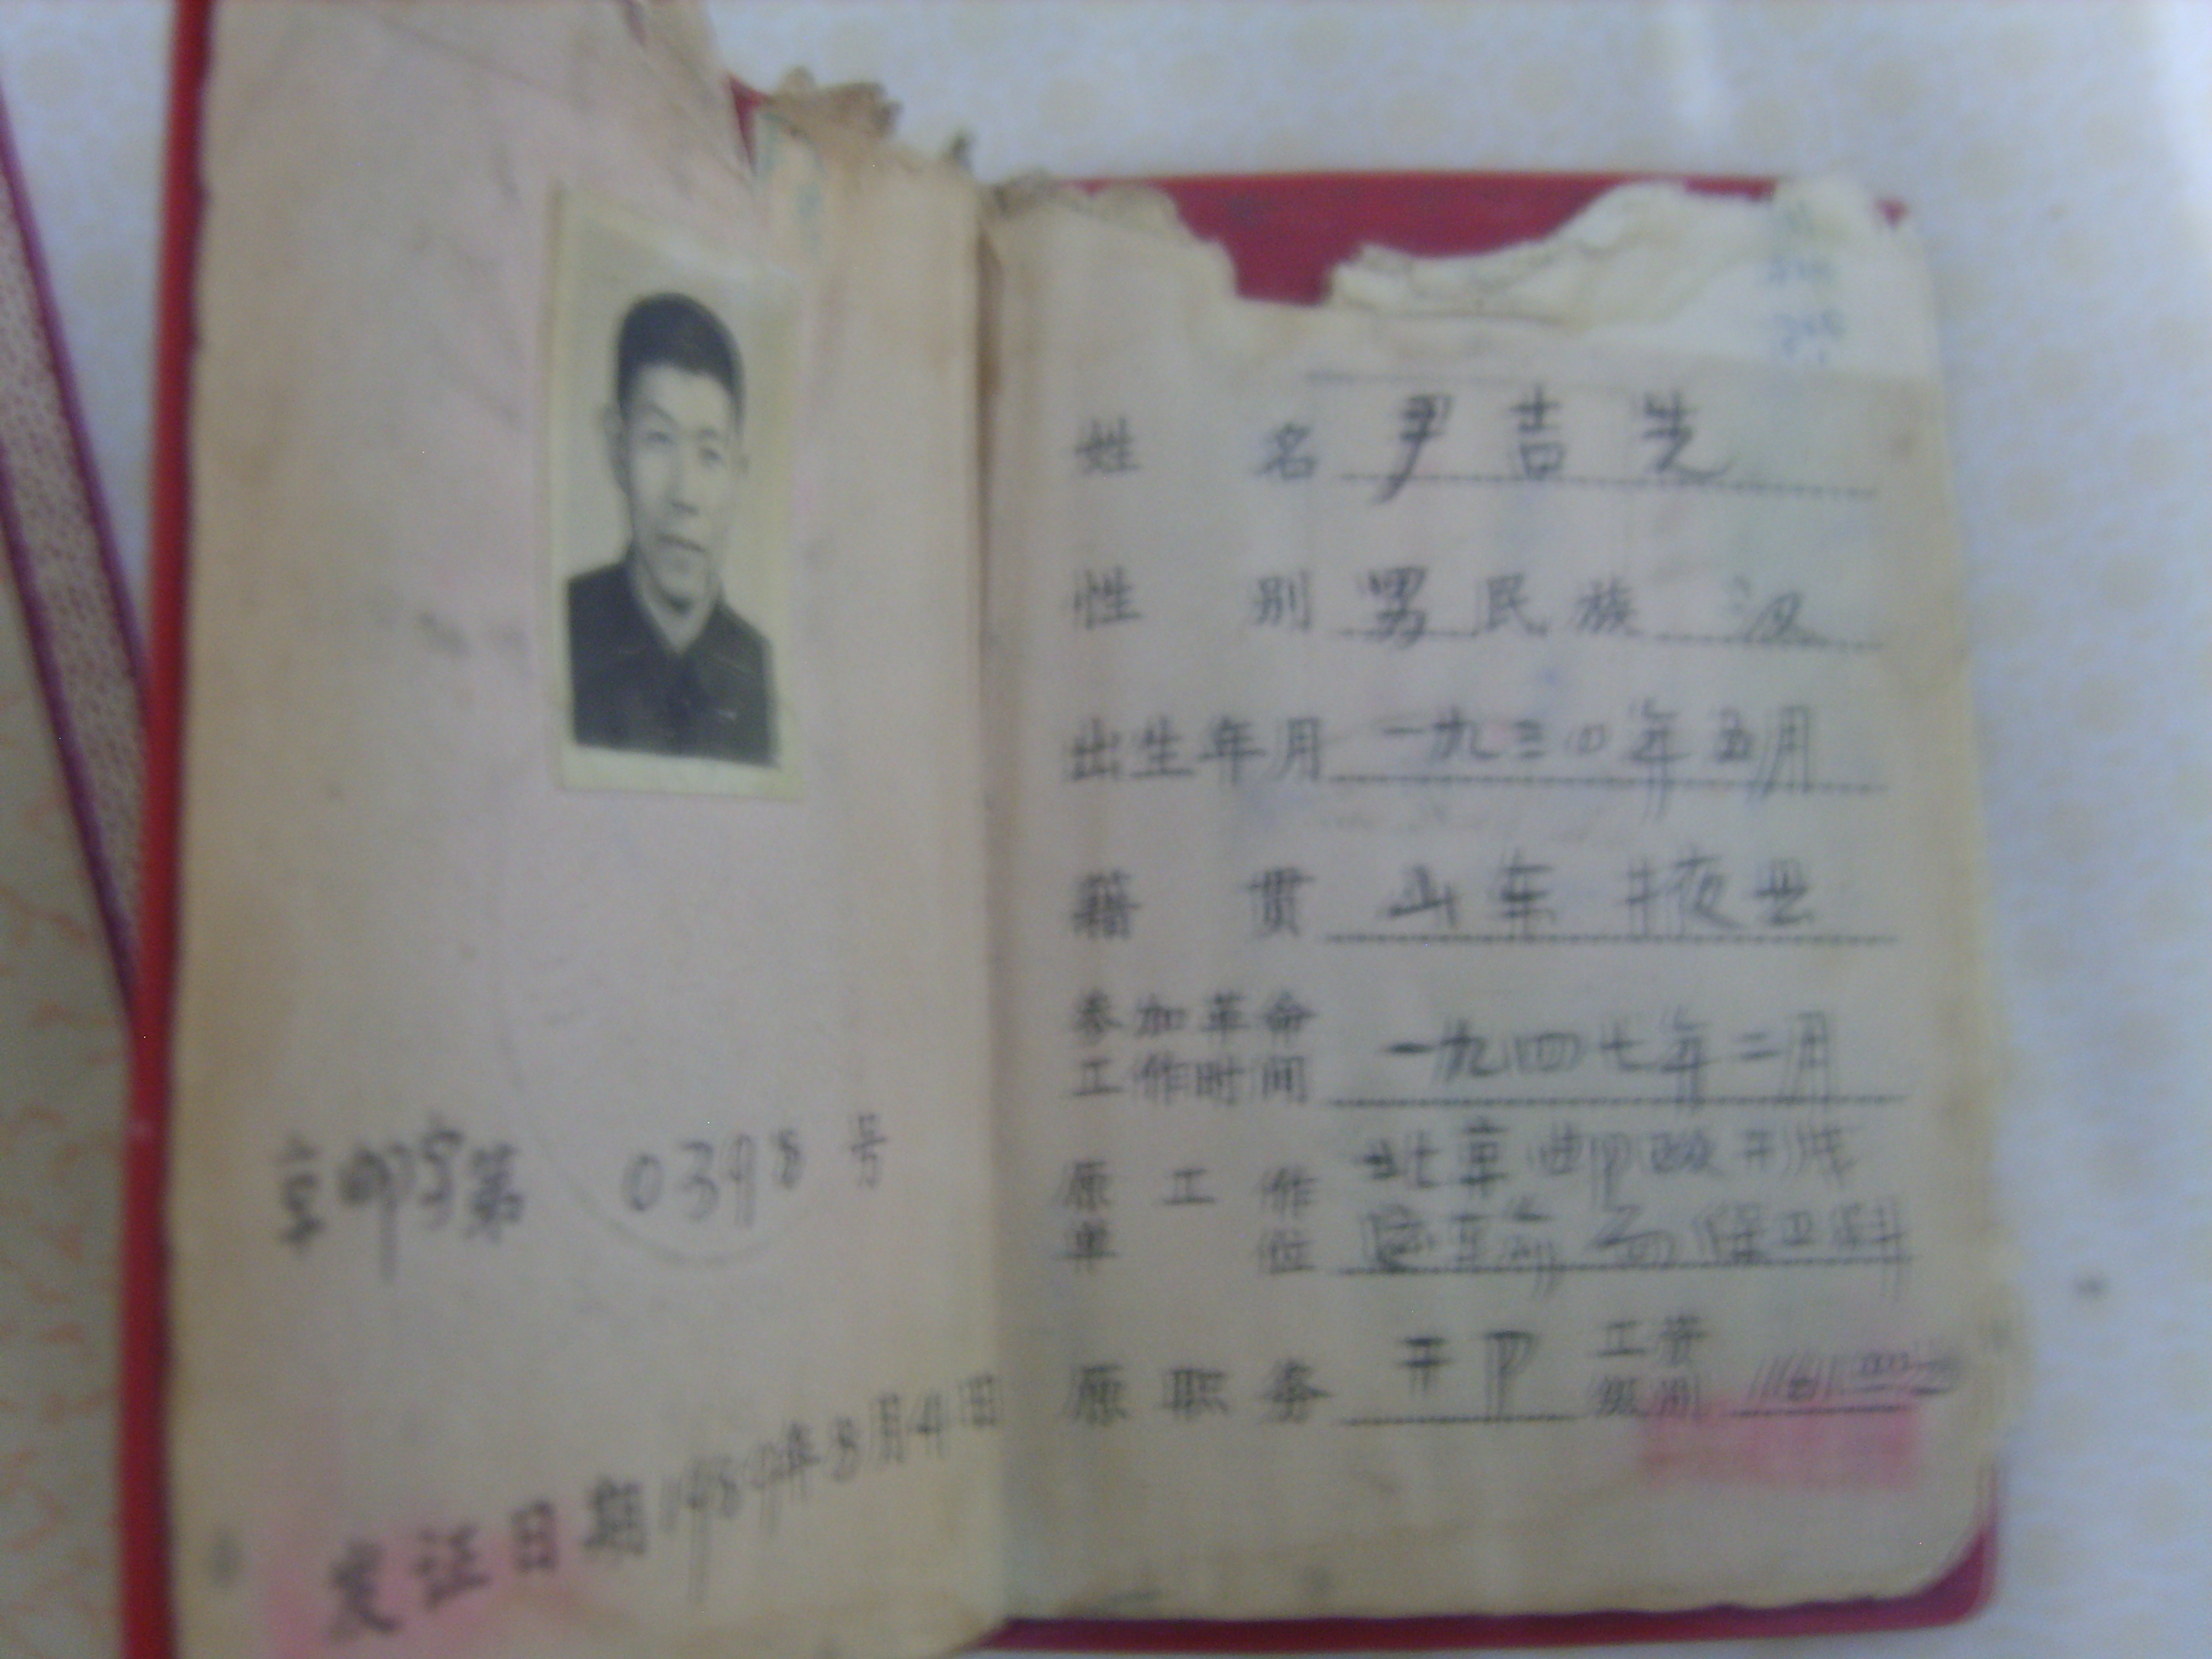 京邮字第 0398 号
发证日期1989年3月4日
姓 名 尹吉先
性 别 男 民族 汉
出生年月 一九三〇年五月
籍 贯 山东掖县
参加革命
工作时间 一九四七年二月
原工作 北京邮政
单 位 运输局保卫科
原职务 干部 工资
级别